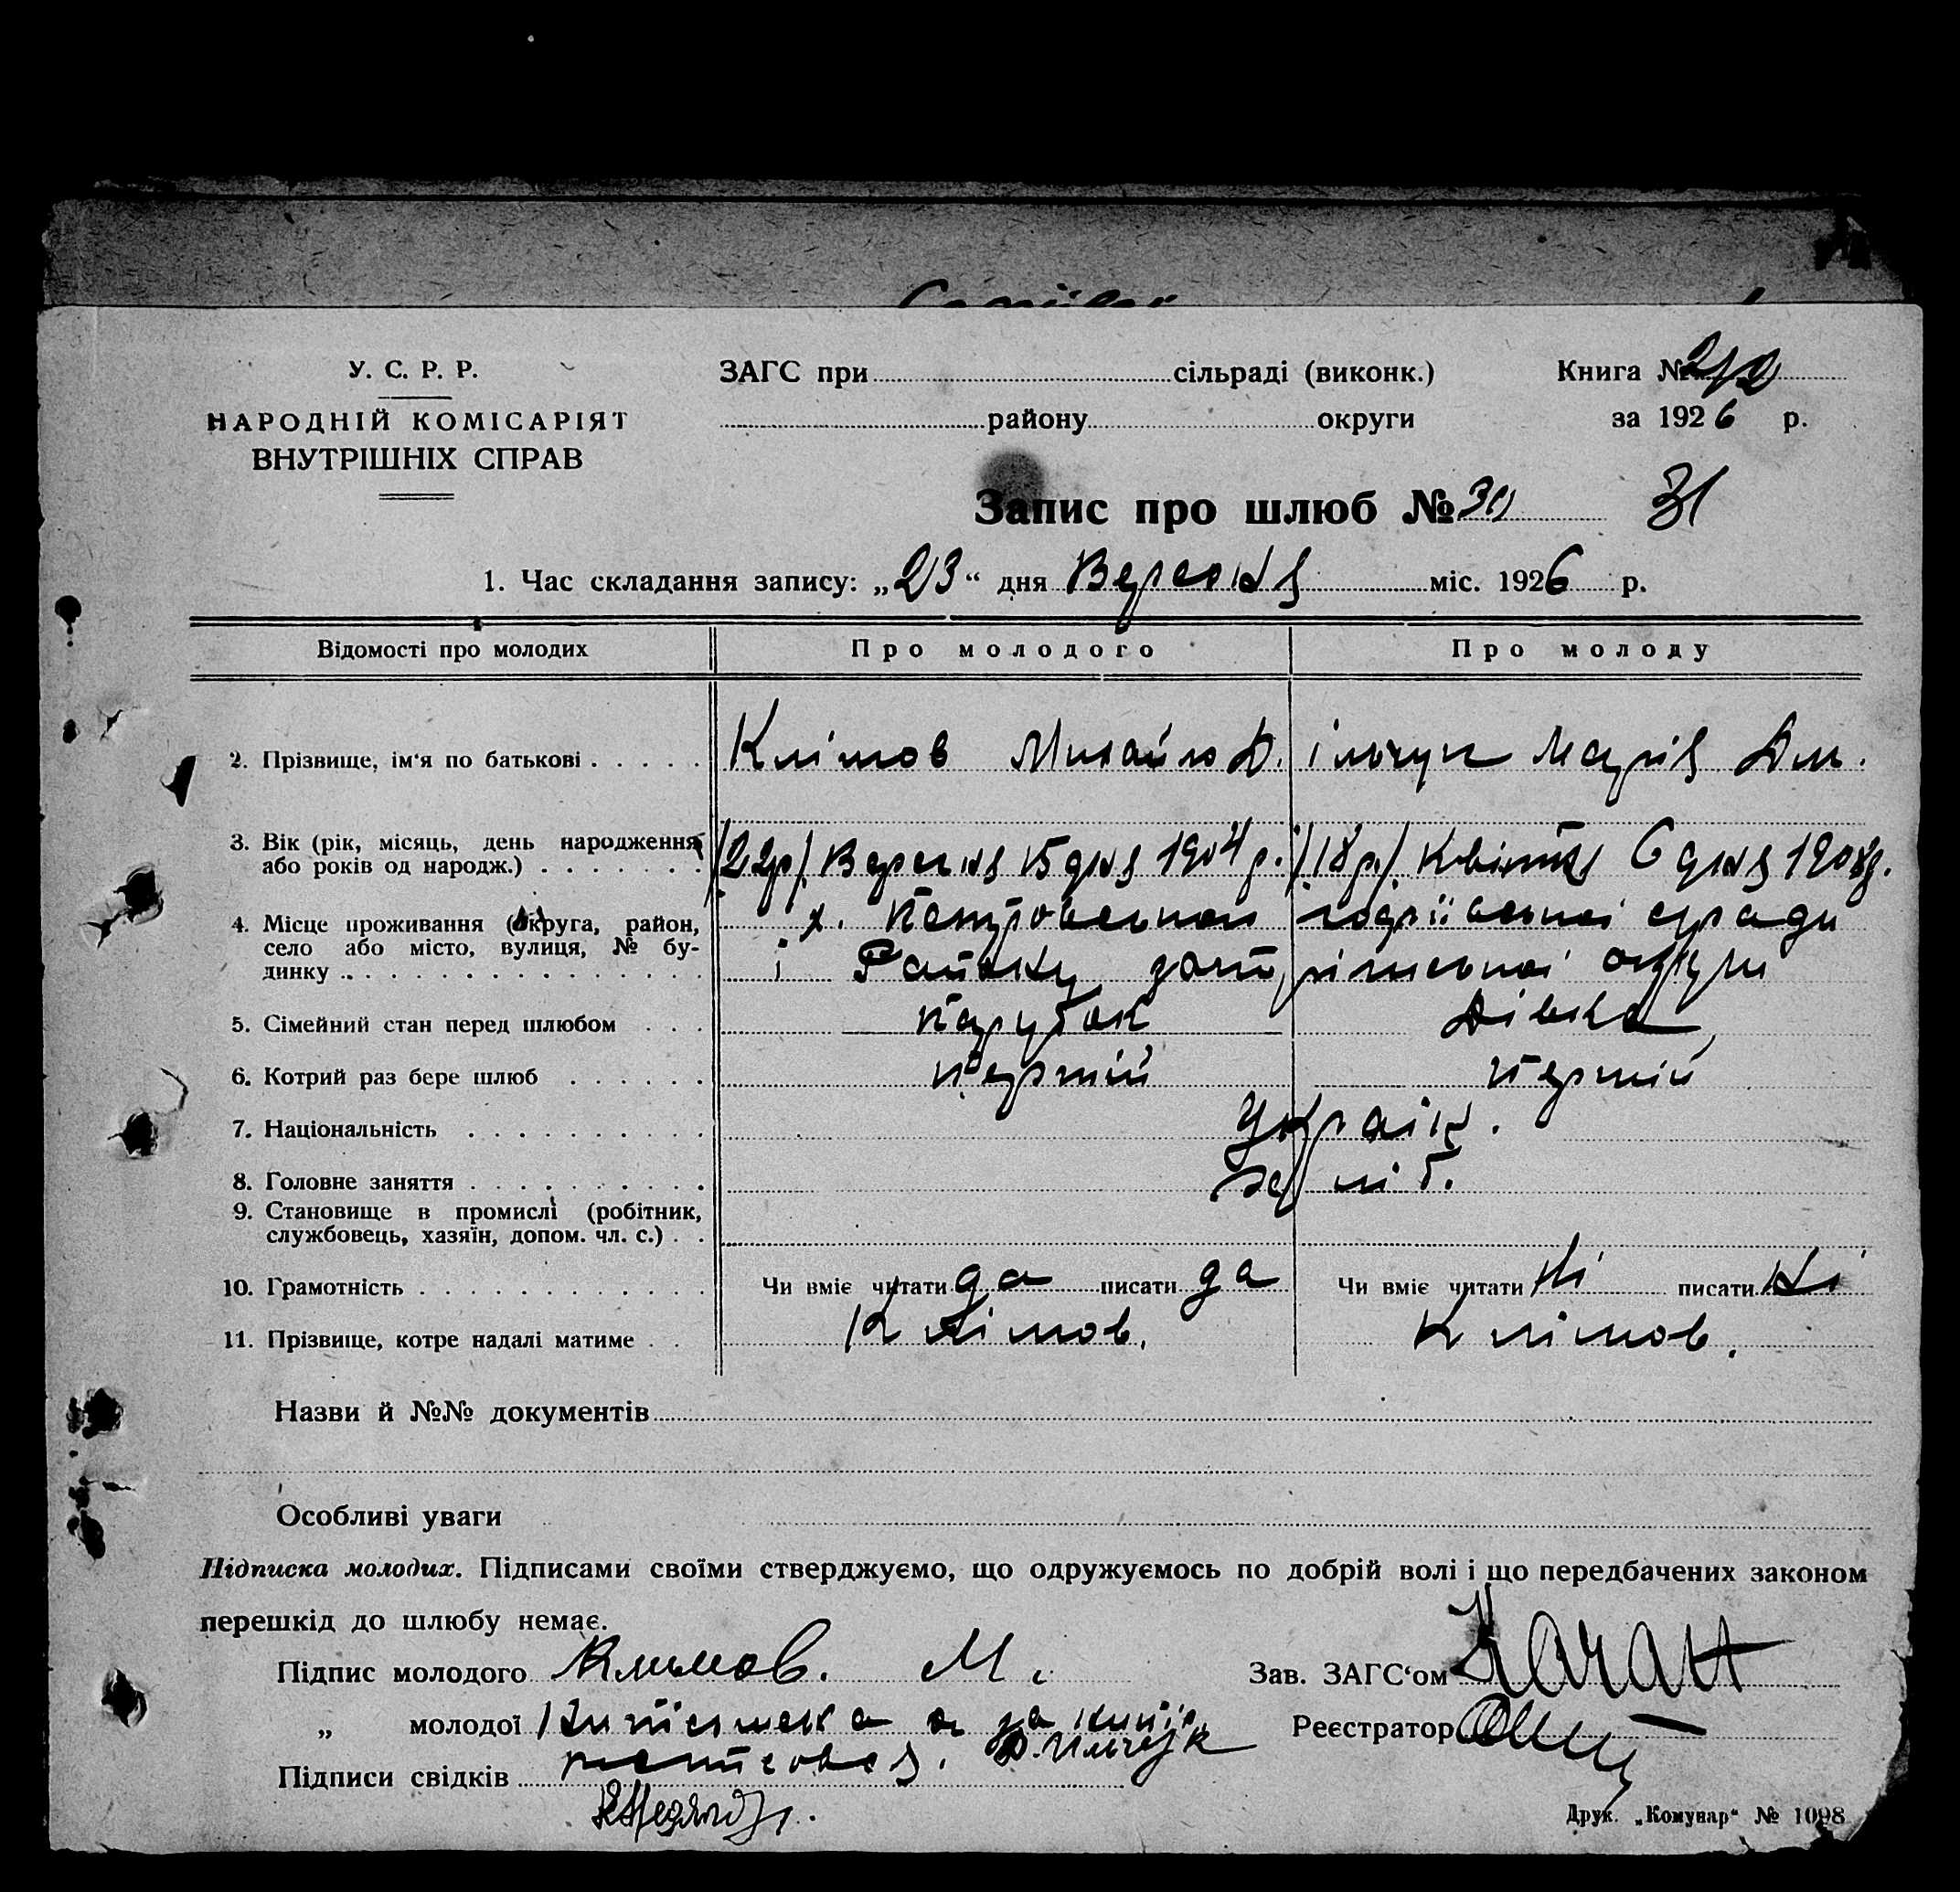 У. С. Р. Р.
НАРОДНІЙ КОМІСАРІЯТ
ВНУТРІШНІХ СПРАВ
ЗАГС при сільраді (виконк.)
району округи
Книга №
за 1926 р.
Запис про шлюб № 30 31
1. Час складання запису: „23“ дня Вересня міс. 1926 р.
Відомості про молодих Про молодого Про молоду
2. Прізвище, ім'я по батькові Клімов Михайло Д. ільчук Марія Дм.
3. Вік (рік, місяць, день народження або років од народж.) /22р/. Вересня 15 дня 1904 р. /18 р/. Квітня 6 дня 1908р.
4. Місце проживання (округа, район, село або місто, вулиця, № будинку х. сьради
і Району округи
5. Сімейний стан перед шлюбом парубок Дівка
6. Котрий раз бере шлюб перший перший
7. Національність Україн.
8. Головне заняття хліб.
9. Становище в промислі (робітник, службовець, хазяїн, допом. чл. с.)
10. Грамотність Чи вміє читати да писати да Чи вміє читати Ні писати Ні
11. Прізвище, котре надалі матиме Клімов. Клімов.
Назви й №№ документів
Особливі уваги
Підписка молодих. Підписами своїми стверджуємо, що одружуємось по добрій волі і що передбачених законом
перешкід до шлюбу немає.
Підпис молодого Климов. М.
Зав. ЗАГС'ом Качан
„ молодої а за
Реєстратор
Підписи свідків Д. Ильчук
Друк. „Комунар“ № 1098